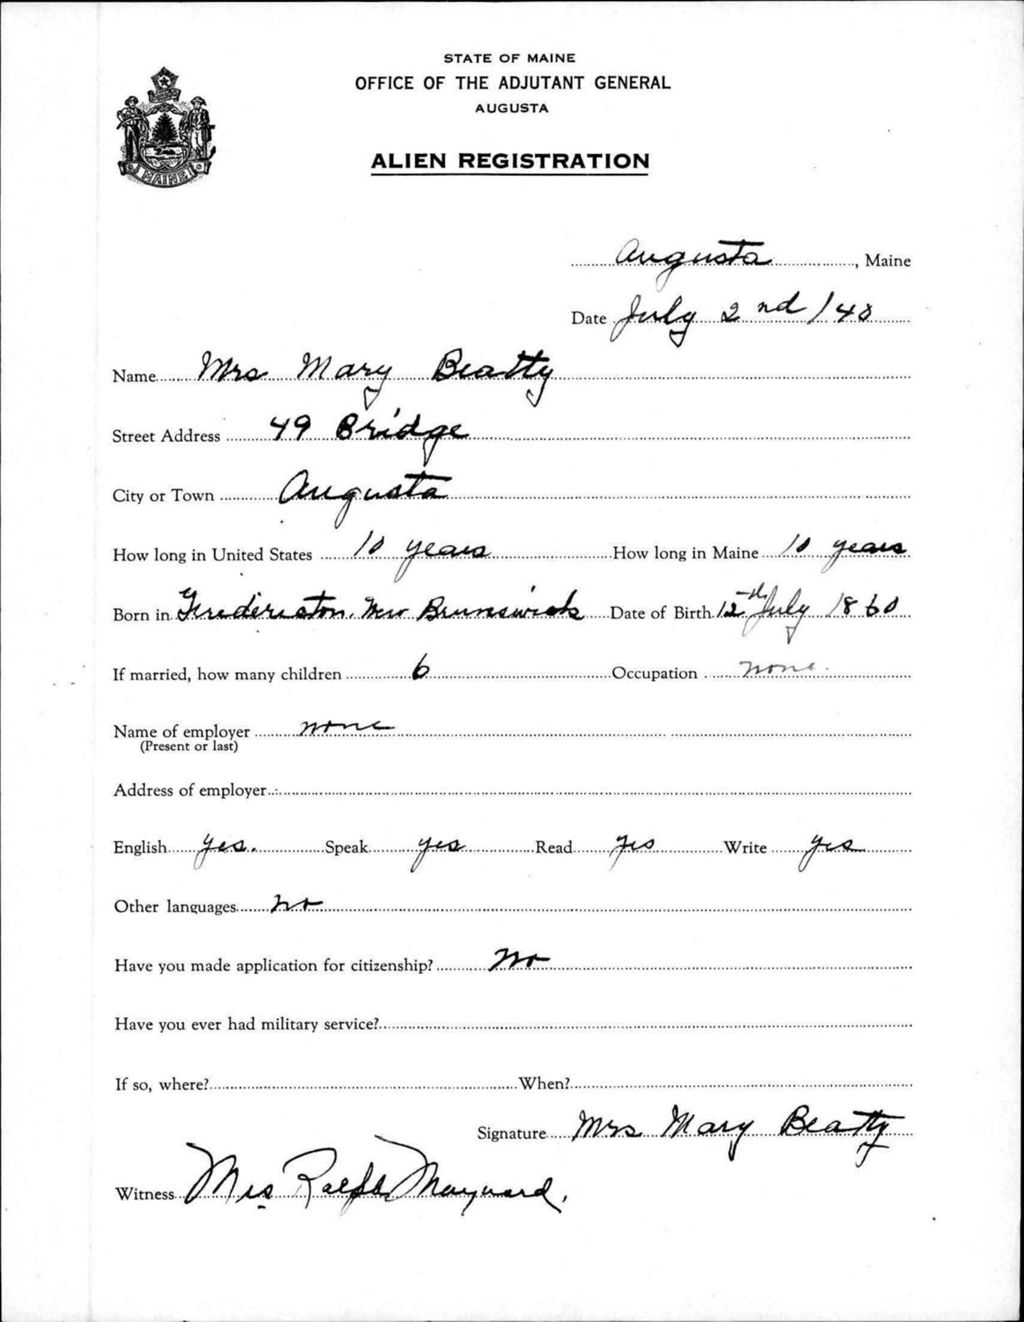 STATE OF MAINE
OFFICE OF THE ADJUTANT GENERAL
AUGUSTA
ALIEN REGISTRATION
MAINE
Augusta, Maine
Date July 2nd /40
Name Mrs Mary Beatty
Street Address 49 Bridge
City or Town Augusta
How long in United States 10 years How long in Maine 10 years
Born in Frederickton, New Brunswick Date of Birth 12th July 1860
If married, how many children 6 Occupation none
Name of employer none
(Present or last)
Address of employer
English yes. Speak yes Read yes Write yes
Other languages no
Have you made application for citizenship? No
Have you ever had military service?
If so, where? When?
Signature Mrs Mary Beatty
Witness Mrs Ralph Maynard.